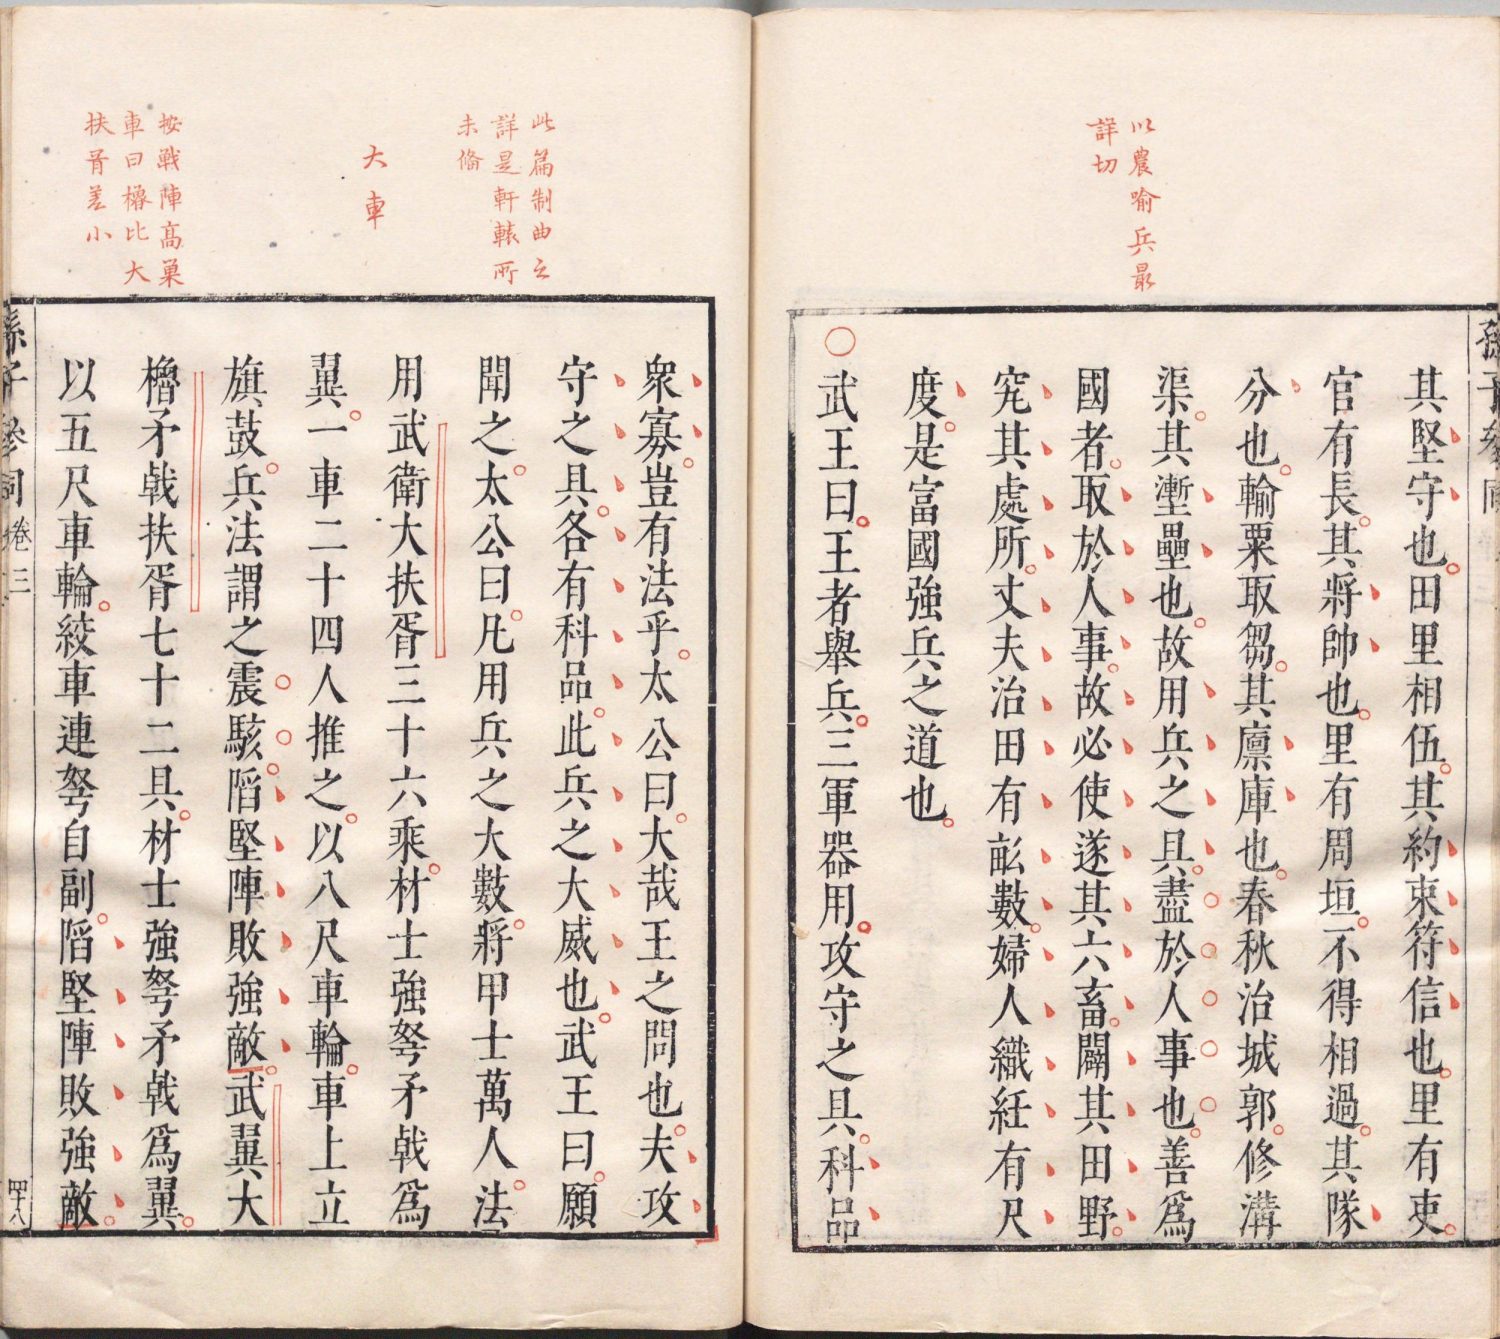 以農喻兵最
詳切
其堅守也田里相伍其約束符信也里有吏
官有長其將帥也里有周垣不得相過其隊
分也輸粟取芻其廩庫也春秋治城郭修溝
渠其塹壘也故用兵之具盡於人事也善爲
國者取於人事故必使遂其六畜闢其田野
究其處所丈夫治田有畝數婦人織紝有尺
度是富國強兵之道也
武王曰王者舉兵三軍器用攻守之具科品
此篇制曲之
詳是軒轅所
未備
大車
按戰陣高巢
車曰櫓比大
扶胥差小
衆寡豈有法乎太公曰大哉王之問也夫攻
守之具各有科品此兵之大威也武王曰願
聞之太公曰凡用兵之大數將甲士萬人法
用武衛大扶胥三十六乘材士強弩矛戟爲
翼一車二十四人推之以八尺車輪車上立
旗鼓兵法謂之震駭陷堅陣敗強敵武翼大
櫓矛戟扶胥七十二具材士強弩矛戟爲翼
以五尺車輪絞車連弩自副陷堅陣敗強敵
孫子參同 卷三 四十八